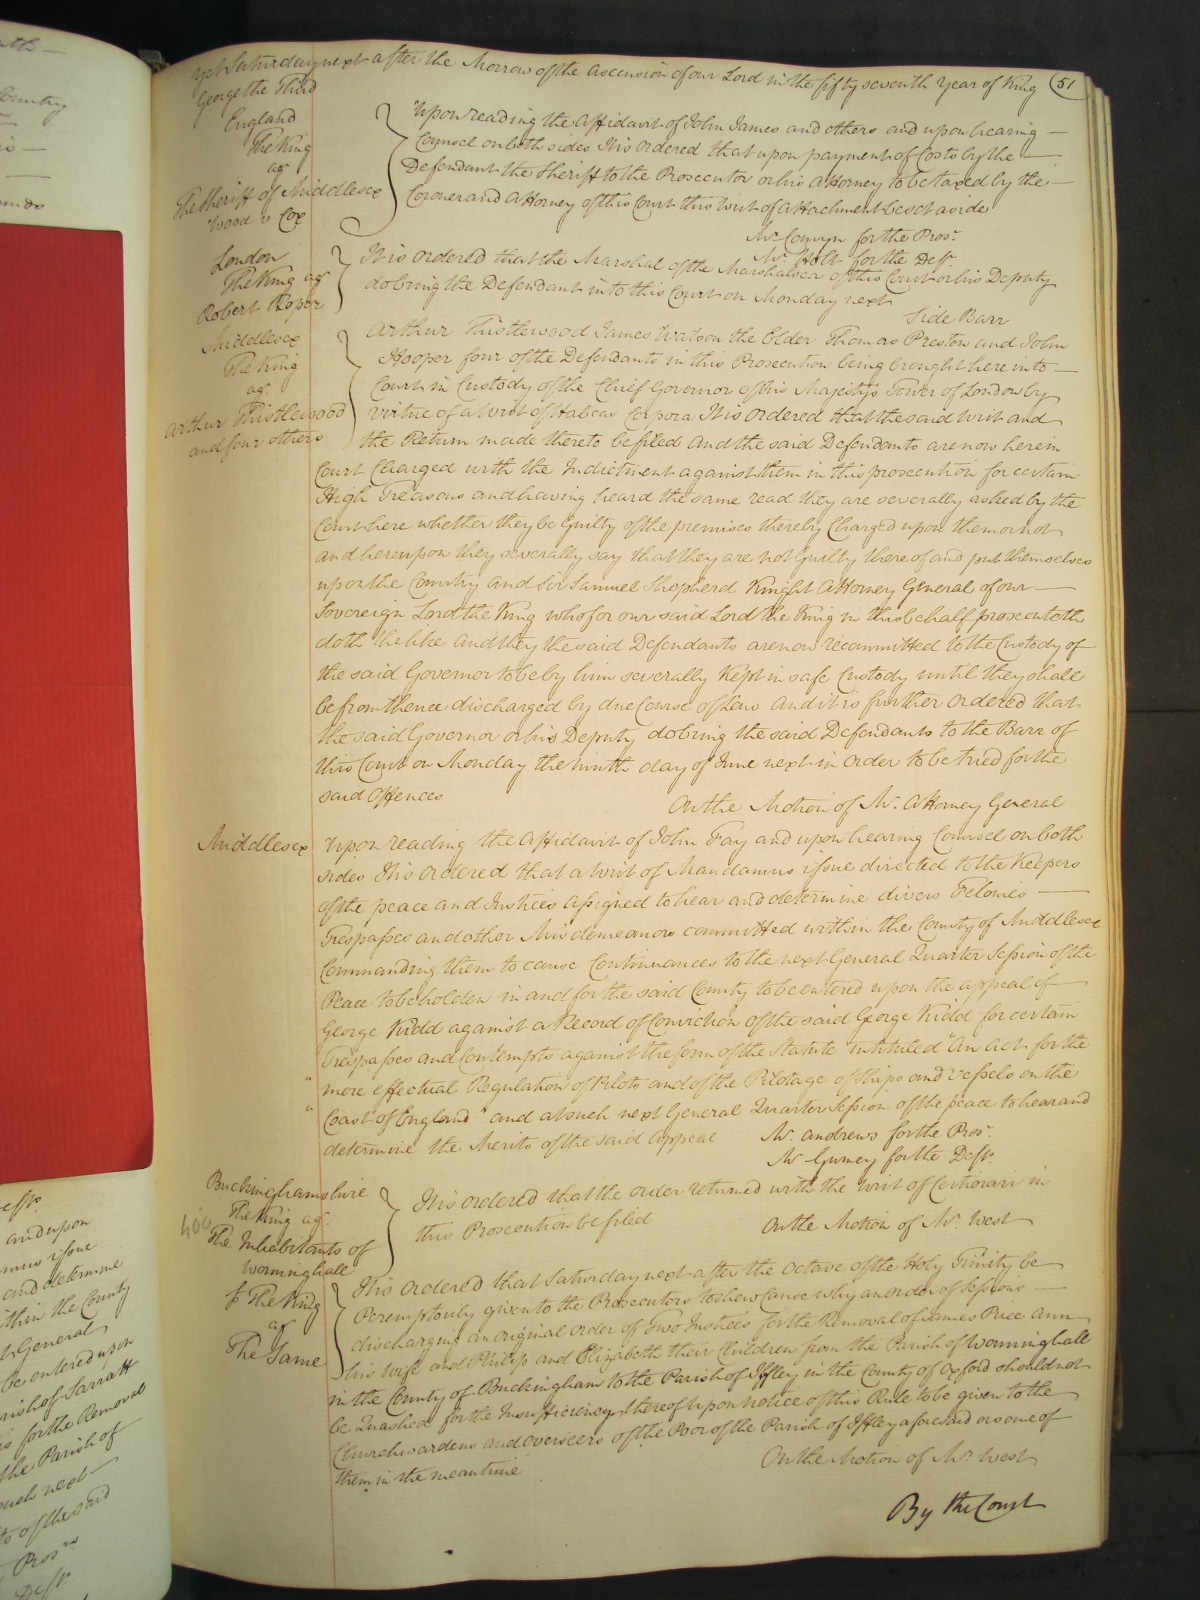 yet Saturday next after the Morrow of the Ascension of our Lord in the fifty seventh Year of King
George the Third
51
England
The King
agt
The Sheriff of Middlesex
Wood v Cox
Upon reading the Affidavit of John James and others and upon hearing
Counsel on both sides It is ordered that upon payment of Costs by the
Defendant the Sheriff to the Prosecutor or his Attorney to be taxed by the
Coroner and Attorney of this Court this Writ of Attachment be set aside
Mr. Comyn for the Prosr.
Mr. Holt for the Deft.
London
The King agt
Robert Roper
It is ordered that the Marshal of the Marshalsea of this Court or his Deputy
do bring the Defendant into this Court on Monday next
Side Barr
Middlesex
The King
agt
Arthur Thistlewood
and four others
Arthur Thistlewood James Watson the Elder Thomas Preston and John
Hooper four of the Defendants in this Prosecution being brought here into
Court in Custody of the Chief Governor of his Majesty's Tower of London by
virtue of a Writ of Habeas Corpora It is ordered that the said Writ and
the Return made thereto be filed And the said Defendants are now here in
Court Charged with the Indictment against them in this prosecution for certain
High Treasons and having heard the same read they are severally asked by the
Court here whether they be Guilty of the premises thereby Charged upon them or not
and hereupon they severally say that they are not Guilty thereof and put themselves
upon the Country and Sir Samuel Shepherd Knight Attorney General of our
Sovereign Lord the King who for our said Lord the King in this behalf prosecuteth
doth the like And they the said Defendants are now recommitted to the Custody of
the said Governor to be by him severally kept in safe Custody until they shall
be from thence discharged by due Course of Law And it is further ordered that
the said Governor or his Deputy do bring the said Defendants to the Barr of
this Court on Monday the ninth day of June next in order to be tried for the
said Offences
On the Motion of Mr. Attorney General
Middlesex
Upon reading the Affidavit of John Fay and upon hearing Counsel on both
sides It is ordered that a Writ of Mandamus issue directed to the Keepers
of the peace and Justices assigned to hear and determine divers Felonies
Trespasses and other Misdemeanors committed within the County of Middlesex
Commanding them to cause Continuances to the next General Quarter Session of the
Peace to be holden in and for the said County to be entered upon the appeal of
George Kidd against a Record of Conviction of the said George Kidd for certain
Trespasses and Contempts against the form of the Statute intituled "An Act for the
" more effectual Regulation of Pilots and of the Pilotage of Ships and Vessels on the
" Coast of England" and at such next General Quarter Session of the peace to hear and
determine the Merits of the said Appeal
Mr. Andrews for the Prosr.
Mr. Gurney for the Deft.
Buckinghamshire
The King agt.
The Inhabitants of
Worminghall
It is ordered that the order returned with the Writ of Certiorari in
this Prosecution be filed
On the Motion of Mr. West
The King
agt
The Same
It is ordered that Saturday next after the Octave of the Holy Trinity be
peremptorily given to the Prosecutors to shew Cause why an order of Sessions
discharging an original order of Two Justices for the Removal of James Price Ann
his wife and Philip and Elizabeth their Children from the Parish of Worminghall
in the County of Buckingham to the Parish of Iffley in the County of Oxford should not
be Quashed for the Insufficiency thereof Upon notice of this Rule to be given to the
Churchwardens and Overseers of the Poor of the Parish of Iffley aforesaid or some of
them in the meantime
On the Motion of Mr. West
By the Court
and upon
and determine
within the County
General
be entered upon
Parish of Sarratt
for the Removal
the Parish of
such next
of the said
Prosr.
Deft.